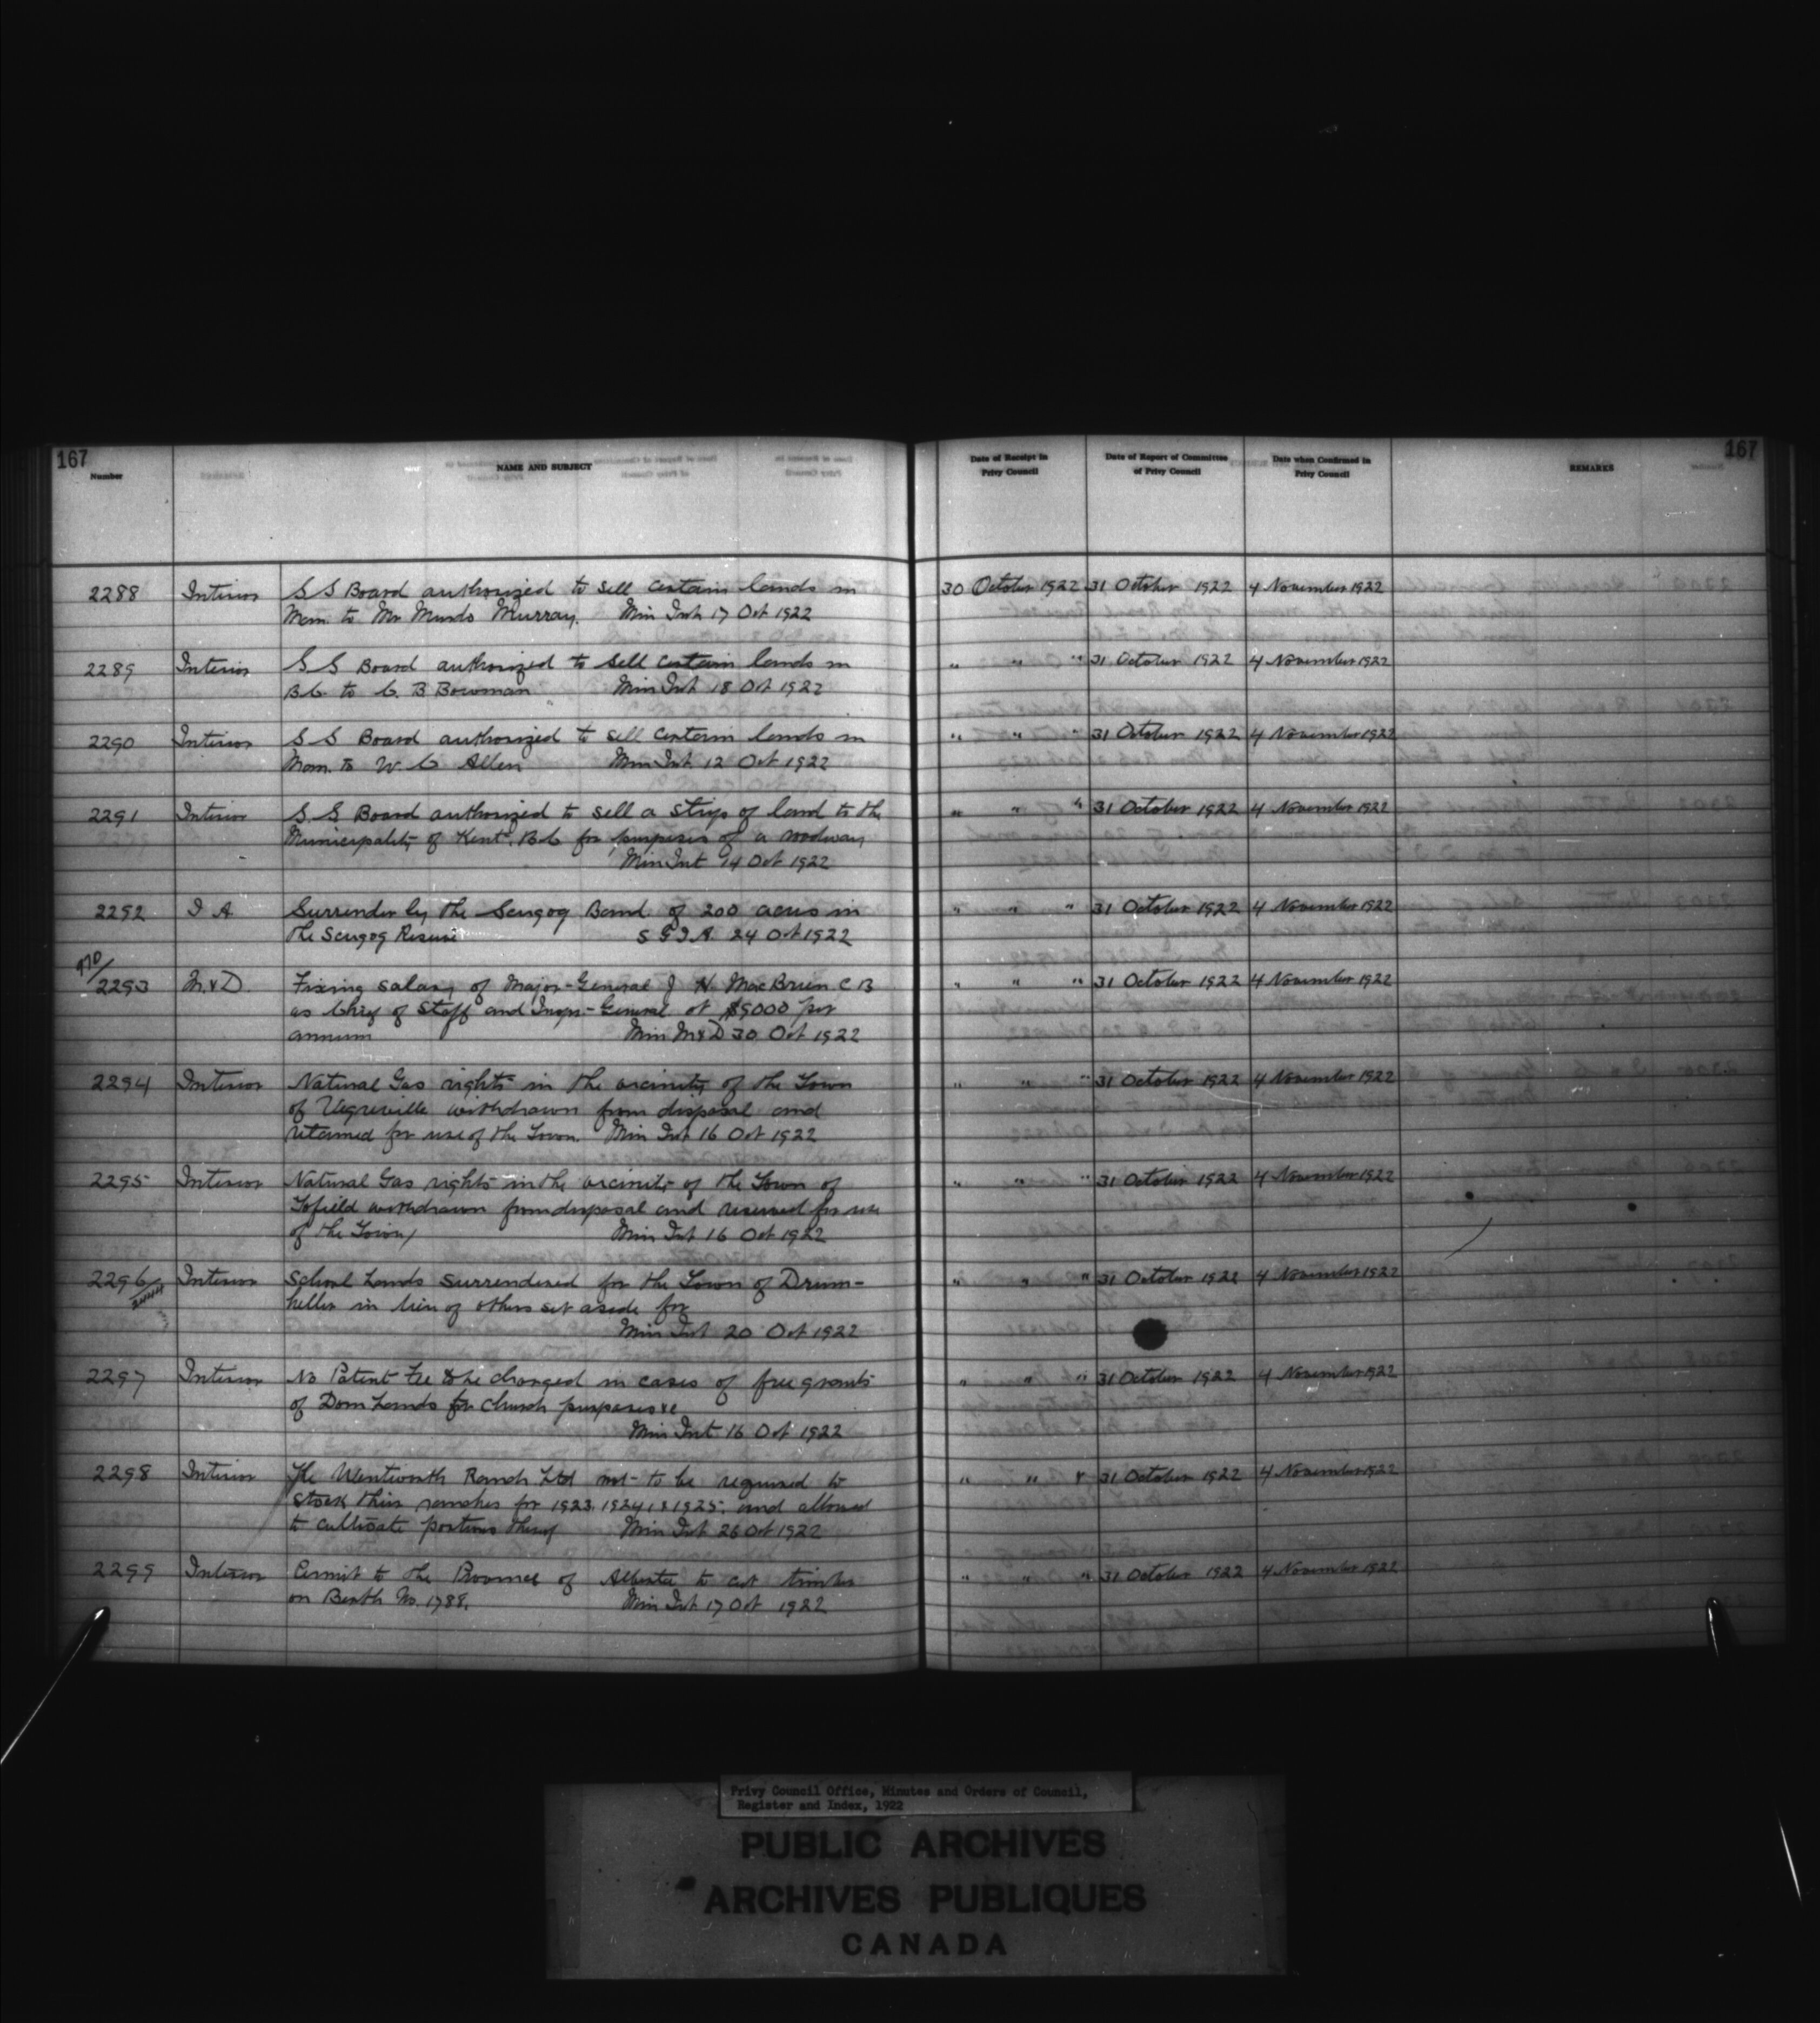 167
167
Number
NAME AND SUBJECT
Date of Receipt in Privy Council
Date of Report of Committee of Privy Council
Date when Confirmed in Privy Council
REMARKS
2288 Interior S S Board authorized to sell certain lands in 30 October 1922 31 October 1922 4 November 1922
Man. to Mr Murdo Murray. Min Int 17 Oct 1922
2289 Interior S S Board authorized to sell certain lands in " " " 31 October 1922 4 November 1922
B.C. to C. B Bowman Min Int 18 Oct 1922
2290 Interior S S Board authorized to sell certain lands in " " " 31 October 1922 4 November 1922
Man. to W. C Allen Min Int 12 Oct 1922
2291 Interior S. S Board authorized to sell a strip of land to the " " " 31 October 1922 4 November 1922
Municipality of Kent. B C for purposes of a roadway
Min Int 14 Oct 1922
2292 I A Surrender by the Scugog Band of 200 acres in " " " 31 October 1922 4 November 1922
the Scugog Reserve S G I A. 24 Oct 1922
2293 M. & D. Fixing salary of Major-General J H. MacBrien C B " " " 31 October 1922 4 November 1922
as Chief of Staff and Inspr-General at $9000 per
annum Min M & D 30 Oct 1922
2294 Interior Natural Gas rights in the vicinity of the Town " " " 31 October 1922 4 November 1922
of Vegreville withdrawn from disposal and
retained for use of the Town. Min Int 16 Oct 1922
2295 Interior Natural Gas rights in the vicinity of the Town of " " " 31 October 1922 4 November 1922
Tofield withdrawn from disposal and reserved for use
of the Town Min Int 16 Oct 1922
2296 Interior School Lands surrendered for the Town of Drum- " " " 31 October 1922 4 November 1922
heller in lieu of others set aside for
Min Int 20 Oct 1922
2297 Interior No Patent Fee to be charged in cases of free grants " " " 31 October 1922 4 November 1922
of Dom Lands for church purposes &c
Min Int 16 Oct 1922
2298 Interior The Wentworth Ranch Ltd not to be required to " " " 31 October 1922 4 November 1922
stock their ranches for 1923, 1924, & 1925, and allowed
to cultivate portions thereof Min Int 26 Oct 1922
2299 Interior Permit to the Province of Alberta to cut timber " " " 31 October 1922 4 November 1922
on Berth No. 1788. Min Int 17 Oct 1922
Privy Council Office, Minutes and Orders of Council,
Register and Index, 1922
PUBLIC ARCHIVES
ARCHIVES PUBLIQUES
CANADA